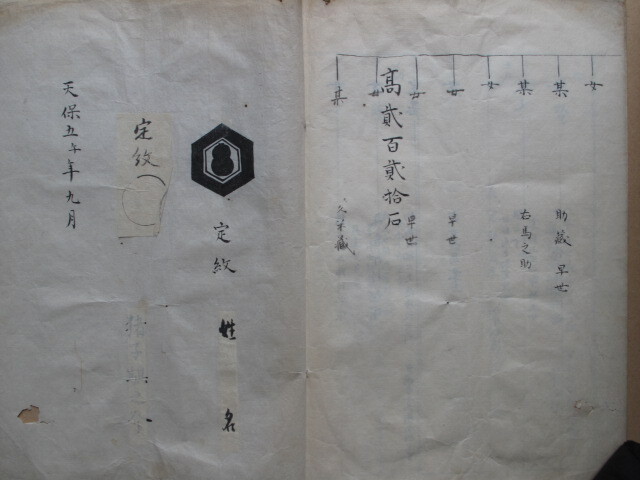 女
某
助蔵 早世
某
右馬之助
女
女
早世
女
早世
高貳百貳拾石
女
某
定紋
姓名
定紋
天保五午年九月